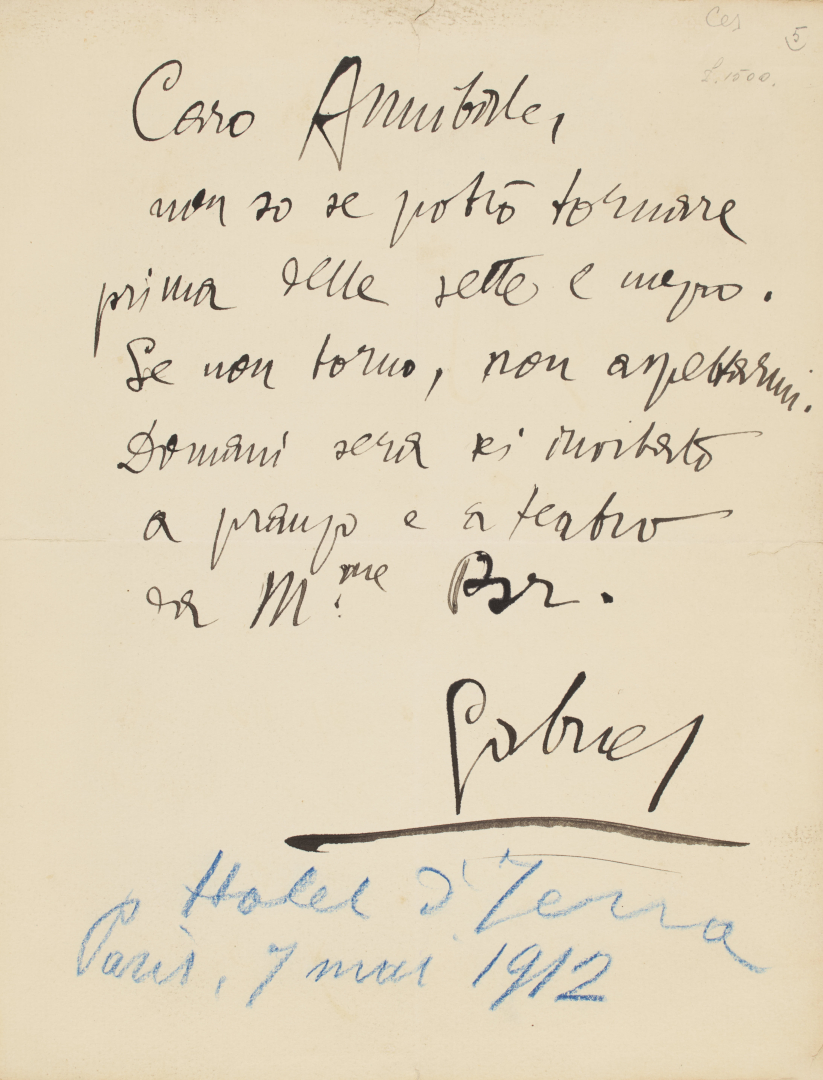 Ces
5
L. 1500.
Caro Annibale,
non so se potrò tornare
prima delle sette e mezzo.
Se non torno, non aspettarmi.
Domani sera sei invitato
a pranzo e a teatro
da M.me Br.
Gabriel
Hotel d'Jenna
Paris, 7 mai 1912